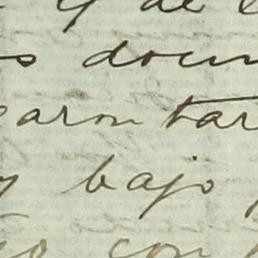 y de
s docu
aron tar
y bajo
to con